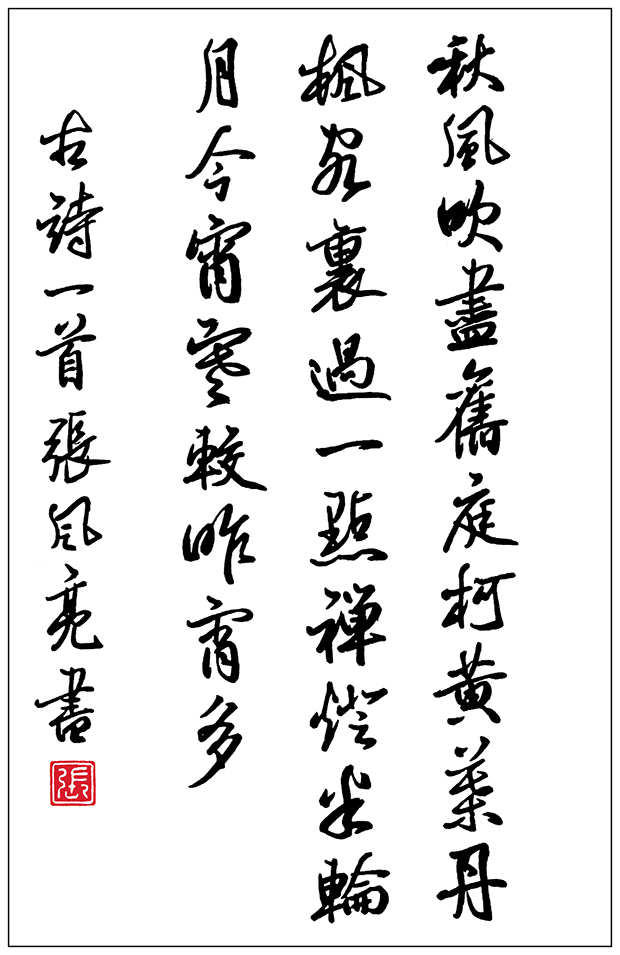 秋風吹盡舊庭柯黄葉丹
楓客裏過一點禪燈半輪
月今宵寒較昨宵多
古詩一首張風亮書
張